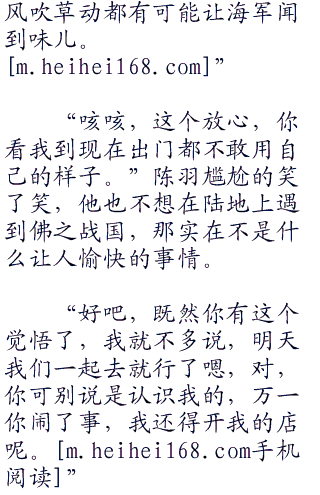 风吹草动都有可能让海军闻
到味儿。
[m.heihei168.com]”
“咳咳，这个放心，你
看我到现在出门都不敢用自
己的样子。”陈羽尴尬的笑
了笑，他也不想在陆地上遇
到佛之战国，那实在不是什
么让人愉快的事情。
“好吧，既然你有这个
觉悟了，我就不多说，明天
我们一起去就行了嗯，对，
你可别说是认识我的，万一
你闹了事，我还得开我的店
呢。[m.heihei168.com手机
阅读]”